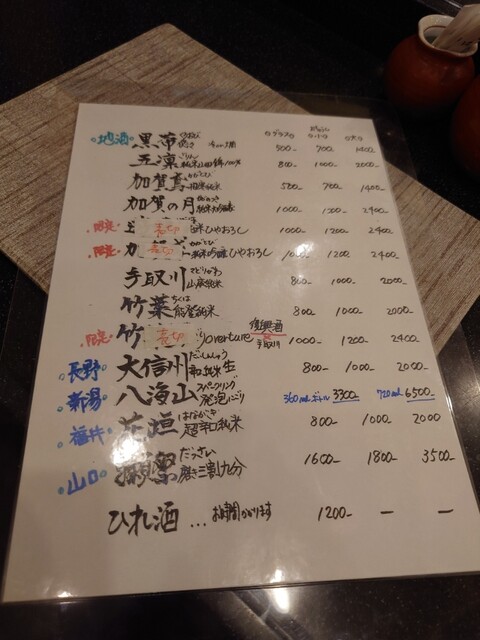 地酒 黒帯 くろおび 500- 700- 1400-
五凛 ごりん 純米山田錦100% 800- 1000- 2000-
加賀鳶 かがとび 純米 500- 700- 1400-
加賀の月 純米大吟醸 1000- 1500- 2400-
限定 売切 ひやおろし 1000- 1200 2400-
限定 加 売切 かがとび 純米吟醸ひやおろし 1000- 1200 2400-
手取川 てどりがわ 山廃純米 800- 1000 2000-
竹葉 ちくは 能登純米 800- 1000- 2000-
限定 竹 売切 overture 復興酒 手取川 1000- 1200 2400-
長野 大信州 だいしんしゅう 辛口純米生 800- 1000- 2000-
新潟 八海山 スパークリング 発泡にごり 360mlボトル 3300- 720ml 6500-
福井 花垣 はながき 超辛口純米 800- 1000- 2000
山口 獺祭 だっさい 磨き三割九分 1600- 1800- 3500-
ひれ酒 ... お時間かかります 1200- - -